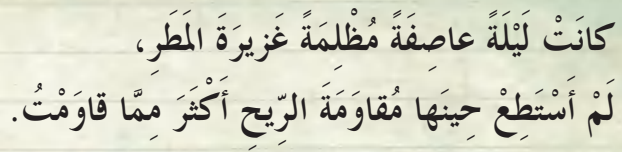 كانَتْ لَيْلَةً عاصِفَةً مُظْلِمَةً غَزيرَةَ المَطَرِ،
لَمْ أَسْتَطِعْ حِينَها مُقاوَمَةَ الرّيحِ أَكْثَرَ مِمَّا قاوَمْتُ.